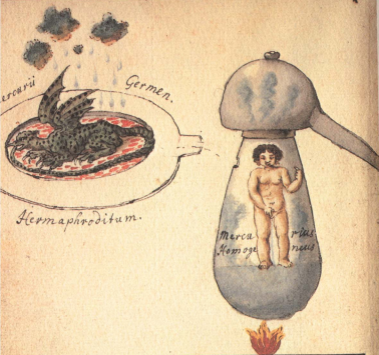 ercurii Germen.
Hermaphroditum.
Mercu rius
Homoge neus